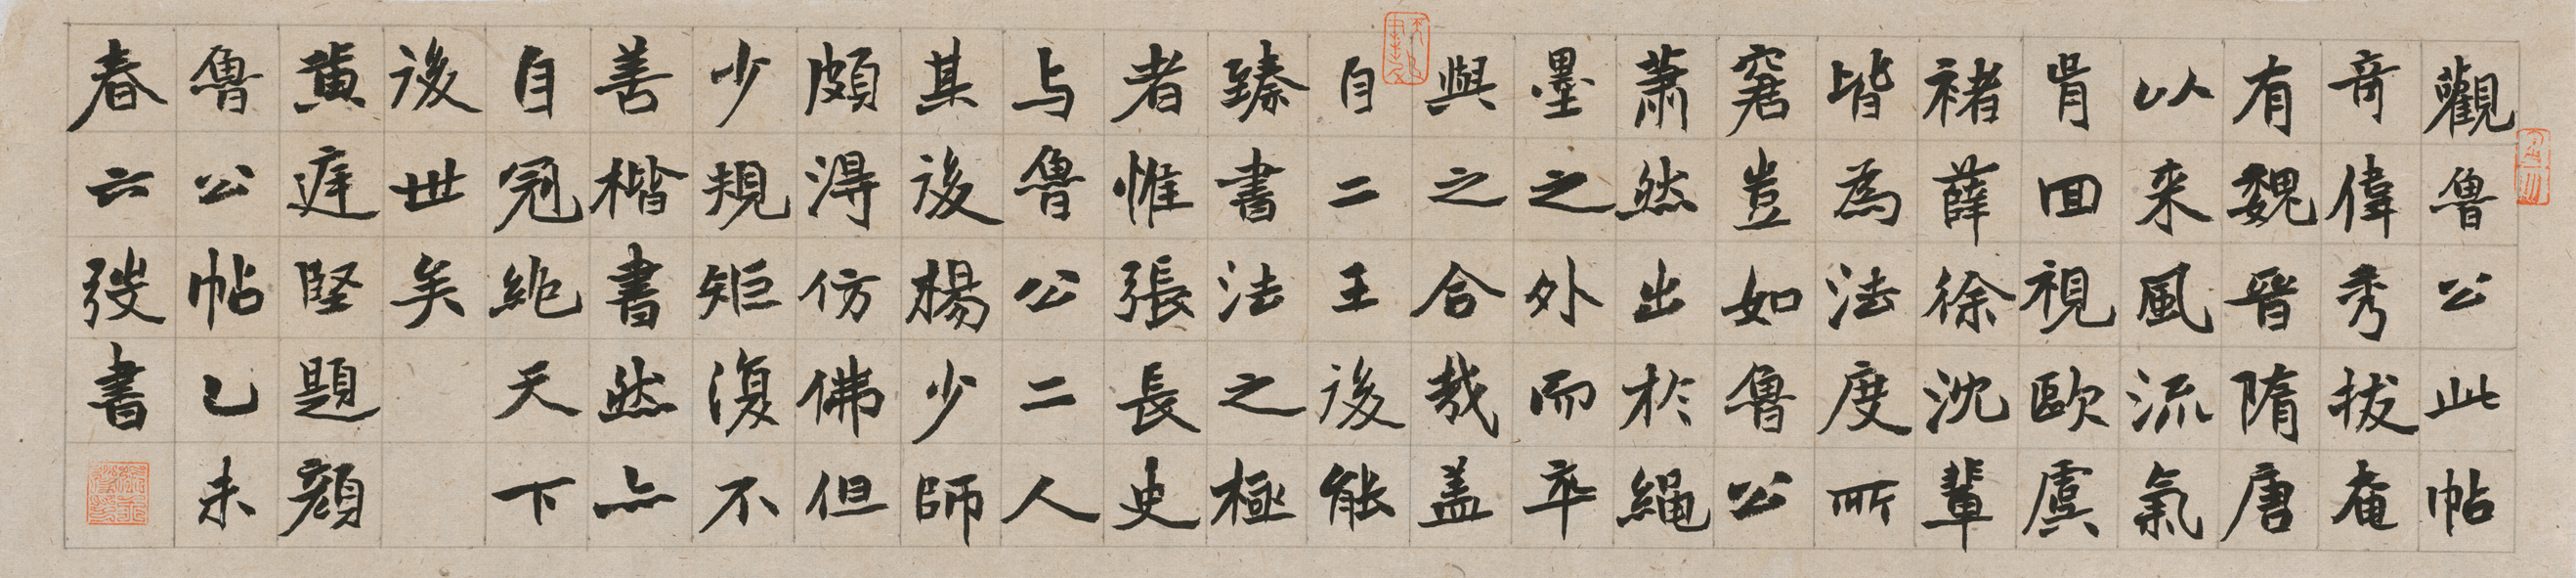 觀魯公此帖
奇偉秀拔奄
有魏晉隋唐
以来風流氣
骨回視歐虞
褚薛徐沈輩
皆為法度所
窘豈如魯公
蕭然出於繩
墨之外而卒
與之合哉盖
自二王後能
臻書法之極
者惟張長史
与魯公二人
其後楊少師
頗得仿佛但
少規矩復不
善楷書然亦
自冠絶天下
後世矣
黄庭堅題顔
魯公帖乙未
春六弢書